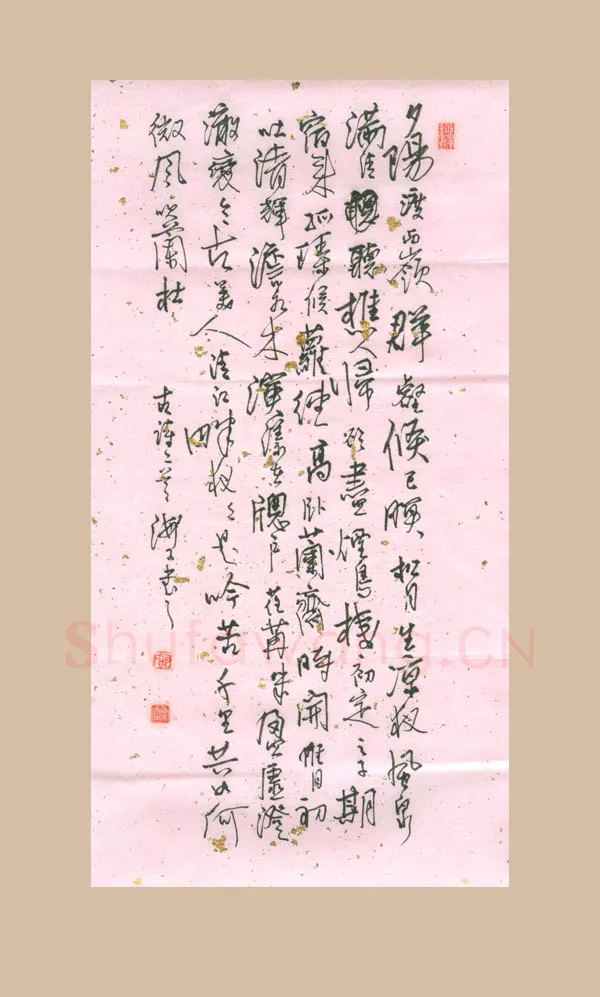 夕陽度西嶺群壑倏已暝松月生涼夜風泉
滿清聽樵人歸欲盡煙鳥棲初定之子期
宿來孤琴候蘿徑高卧蘭齋時開帷月初
吐清輝澹水木演漾在窗戶荏苒幾盈虛澄
澈變今古美人清江畔夜夜是吟苦千里共如何
微風吹蘭杜
古詩二首 書之
Shufawang.CN